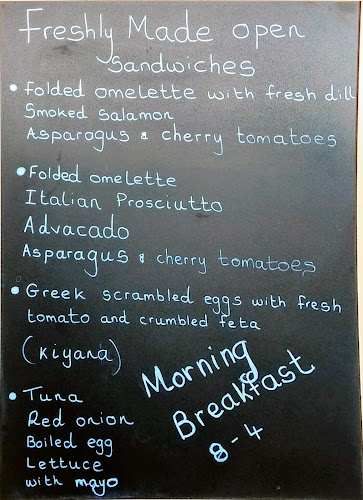 Freshly Made open
Sandwiches
• Folded omelette with fresh dill
Smoked Salamon
Asparagus & cherry tomatoes
• Folded omelette
Italian Prosciutto
Advacado
Asparagus & cherry tomatoes
• Greek scrambled eggs with fresh
tomato and crumbled feta
(Kiyana)
• Tuna
Red onion
Boiled egg
Lettuce
with mayo
Morning
Breakfast
8-4